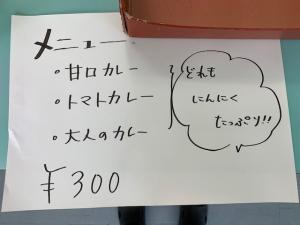 メニュー
・甘口カレー
・トマトカレー
・大人のカレー
¥300
どれも
にんにく
たっぷり!!